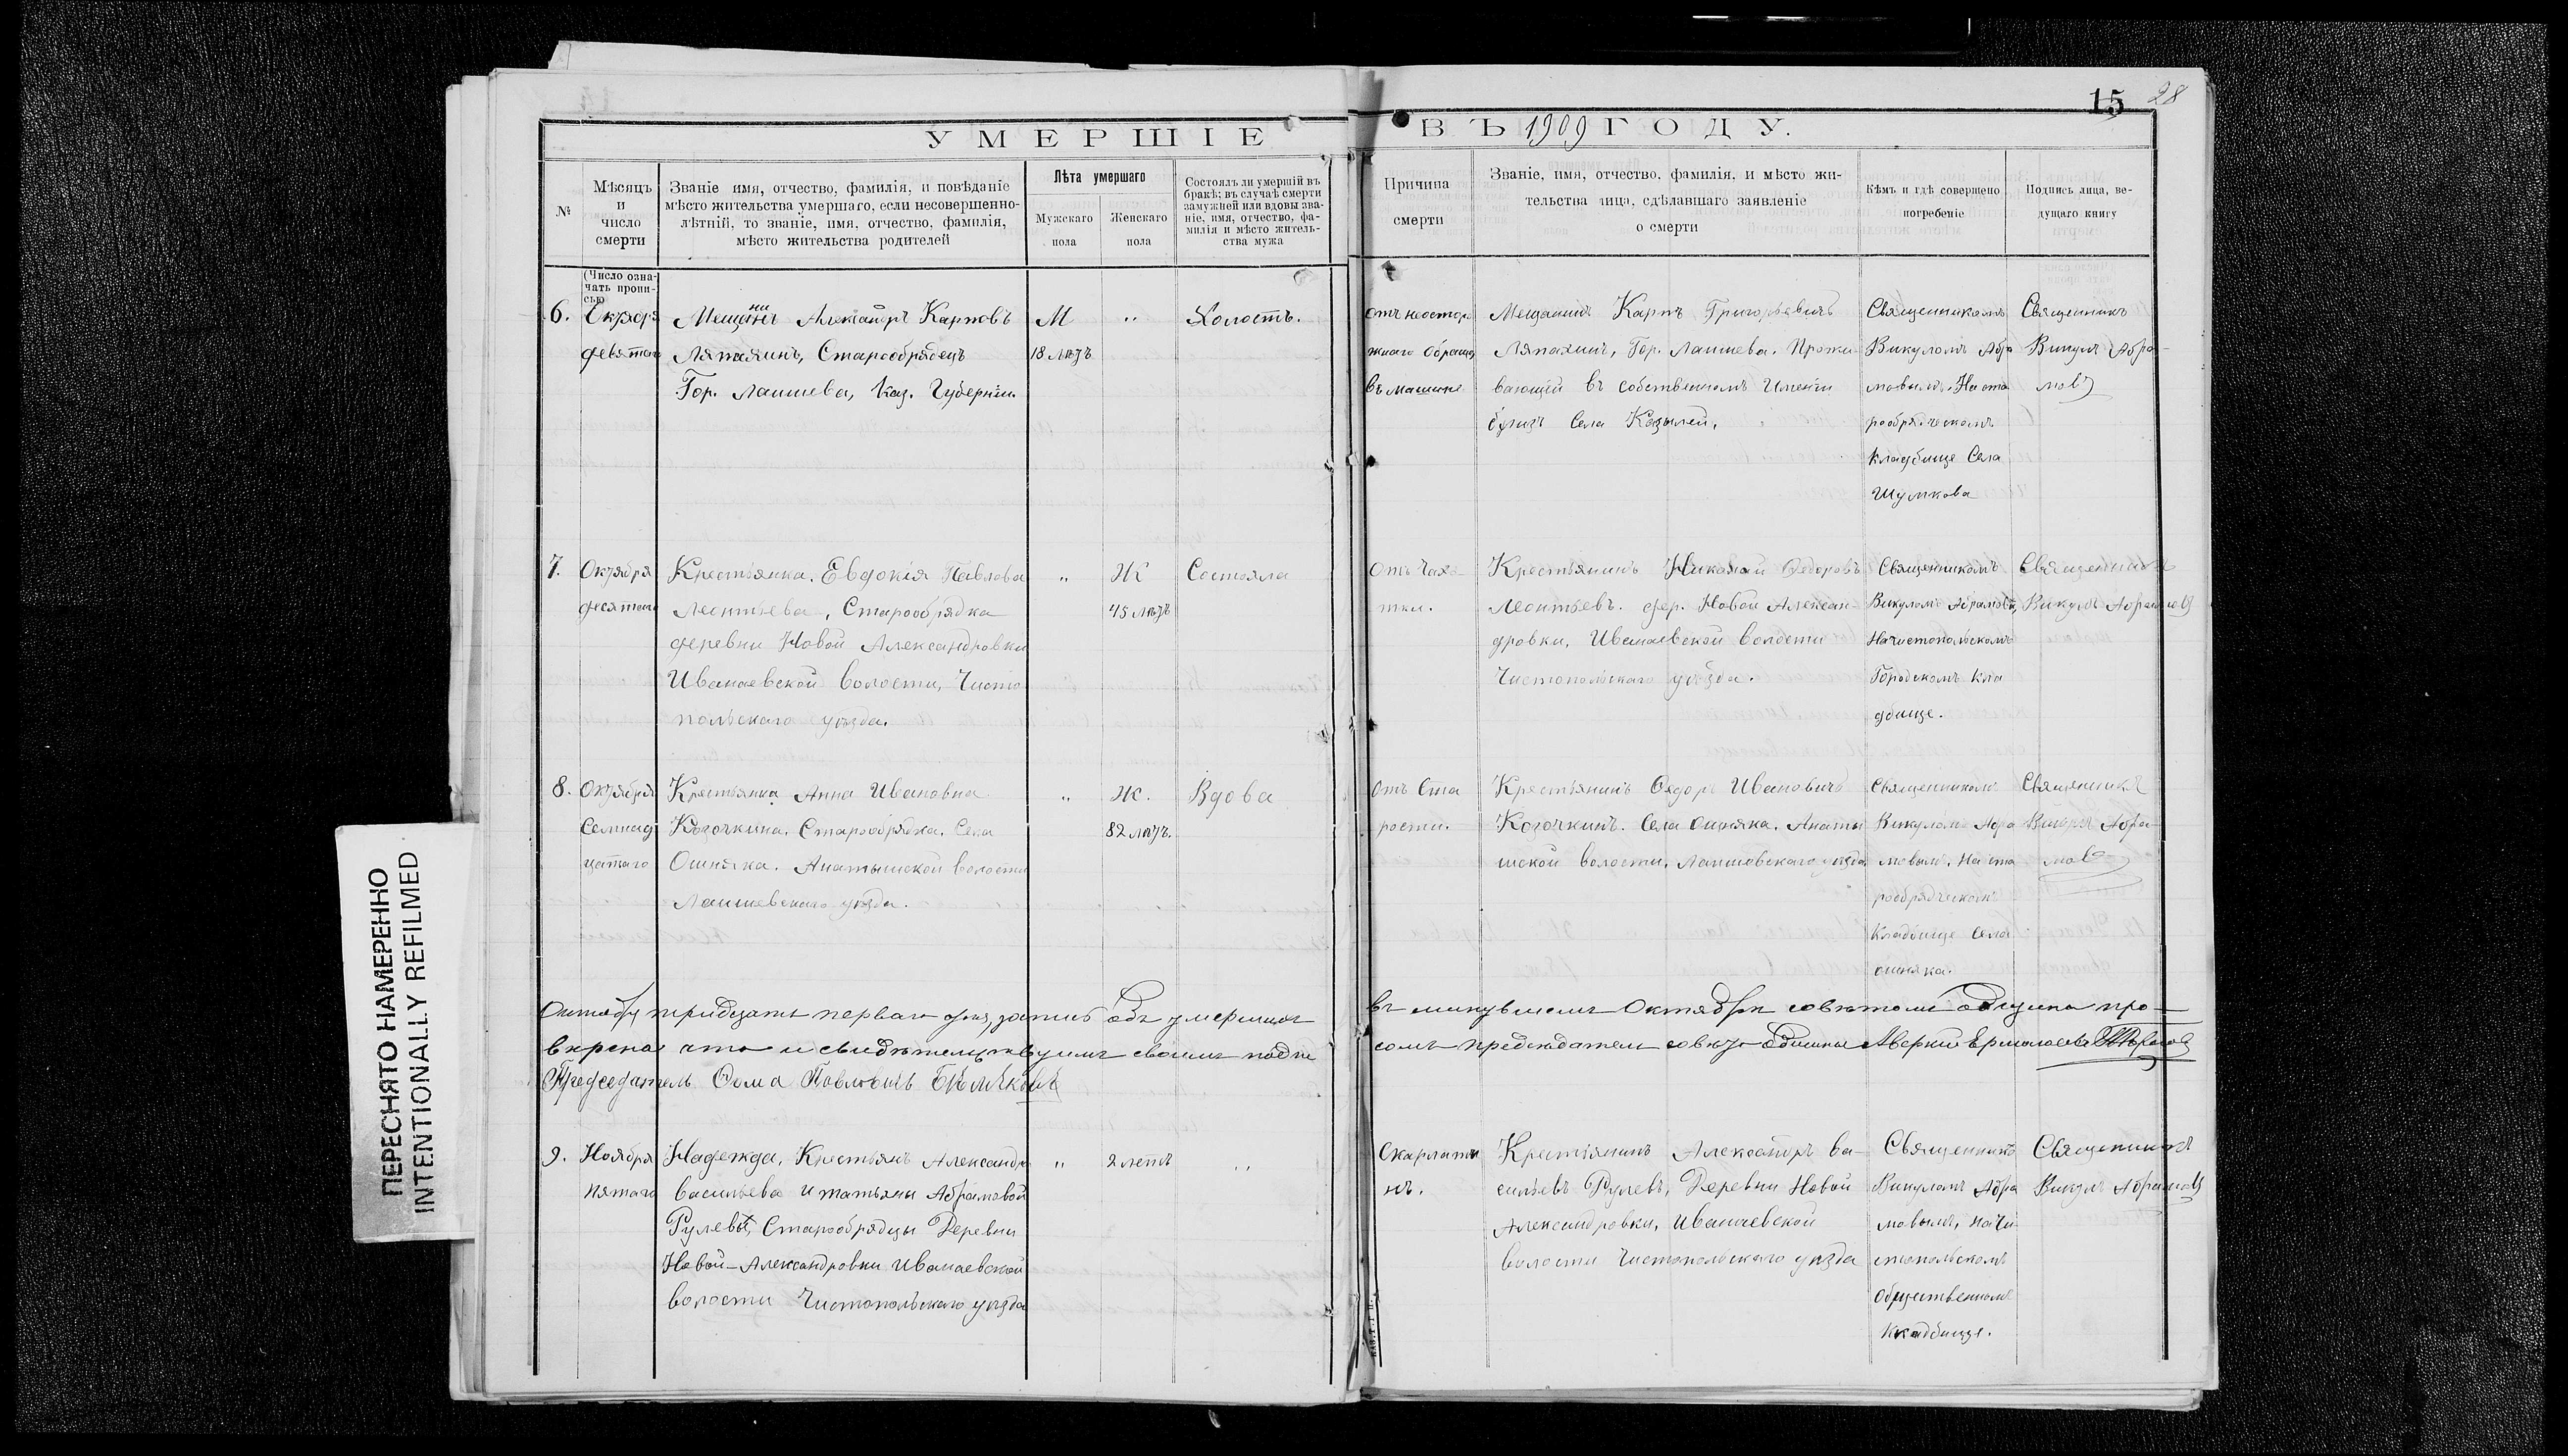 15 28
УМЕРШІЕ ВЪ 1909 ГОДУ.
№
Мѣсяцъ
и
число
смерти
Званіе имя, отчество, фамилія, и повѣданіе
мѣсто жительства умершаго, если несовершенно-
лѣтній, то званіе, имя, отчество, фамилія,
мѣсто жительства родителей
Лѣта умершаго
Мужскаго
пола
Женскаго
пола
Состоялъ ли умершій въ
бракѣ; въ случаѣ смерти
замужней или вдовы зва-
ніе, имя, отчество, фа-
милія и мѣсто житель-
ства мужа
Причина
смерти
Званіе, имя, отчество, фамилія, и мѣсто жи-
тельства лица, сдѣлавшаго заявленіе
о смерти
Кѣмъ и гдѣ совершено
погребеніе
Подпись лица, ве-
дущаго книгу
(Число озна-
чать пропи-
сью
6.
Октября
девятаго
Мещанинъ Александръ Карповъ
Ляпахинъ, Старообрядецъ
Гор. Лаишева, Каз. Губерніи.
М
18 лѣтъ
"
Холостъ.
отъ неосторо
жнаго обращ
въ машине
Мещанинъ Карпъ Григорьевичъ
Ляпахинъ, Гор. Лаишева. Прожи-
вающій въ собственномъ Имѣніи
близъ Села Казылей.
Священникомъ
Викуломъ Абра
мовымъ. На ста
рообрядческомъ
кладбище Села
Шумкова
Священникъ
Викулъ Абра-
мовъ
7.
Октября
десятаго
Крестьянка, Евдокія Павлова
Леонтьева, Старообрядка
деревни Новой Александровки
Иванаевской волости, Чисто
польскаго уѣзда.
"
Ж
45 лѣтъ
Состояла
Отъ Чахо-
тки.
Крестьянинъ Никонай Ѳедоровъ
Леонтьевъ. дер. Новой Алексан-
дровки, Иванаевской волости
Чистопольскаго уѣзда.
Священникомъ
Викуломъ Абрамовы,
На чистопольскомъ
Городскомъ кла
дбище.
Священникъ
Викулъ Абрамовъ
8.
Октября
Семнад
цатаго
Крестьянка Анна Ивановна
Когочкина. Старообрядка. Села
Ошняка. Анатышской волости
Лаишевскаго уѣзда.
"
Ж.
82 лѣтъ.
Вдова
Отъ Ста
рости.
Крестьянинъ Ѳедоръ Ивановичъ
Когочкинъ. Села Ошняка. Анаты
шской волости. Лаишовскаго уѣзда
Священникомъ
Викуломъ Абра
мовымъ, На ста
рообрядческомъ
Кладбище Села
ошняка.
Священникъ
Викулъ Абра-
мовъ
Октября тридцать перваго дня, запись объ умершихъ въ минувшемъ Октябрѣ совѣтомъ общины про-
верена что и свидѣтельствуемъ своимъ подпи сомъ председатель совѣта общины Аверкий Ермолаевъ
Председатель Ѳома Павловичъ Бѣляковъ
9.
Ноября
пятаго
Надежда, Крестьянъ Александра
Васильева и татьяны Абрамовой
Рулевы, Старообрядцы Деревни
Новой-Александровки Иванаевской
волости Чистопольскаго уѣзда
"
2 летъ
"
Скарлати
нъ.
Крестьянинъ Александръ Ва-
сильевъ Рулевъ, Деревни Новой
Александровки, Иванаевской
волости Чистопольскаго уѣзда
Священникъ
Викуломъ Абра
мовымъ, на Чи-
стопольскомъ
Общественномъ
Кладбище.
Священникъ
Викулъ Абрамовъ
ПЕРЕСНЯТО НАМЕРЕННО
INTENTIONALLY REFILMED